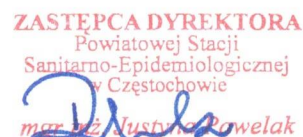 ZASTĘPCA DYREKTORA
Powiatowej Stacji
Sanitarno-Epidemiologicznej
w Częstochowie
mgr inż. Justyna Pawelak